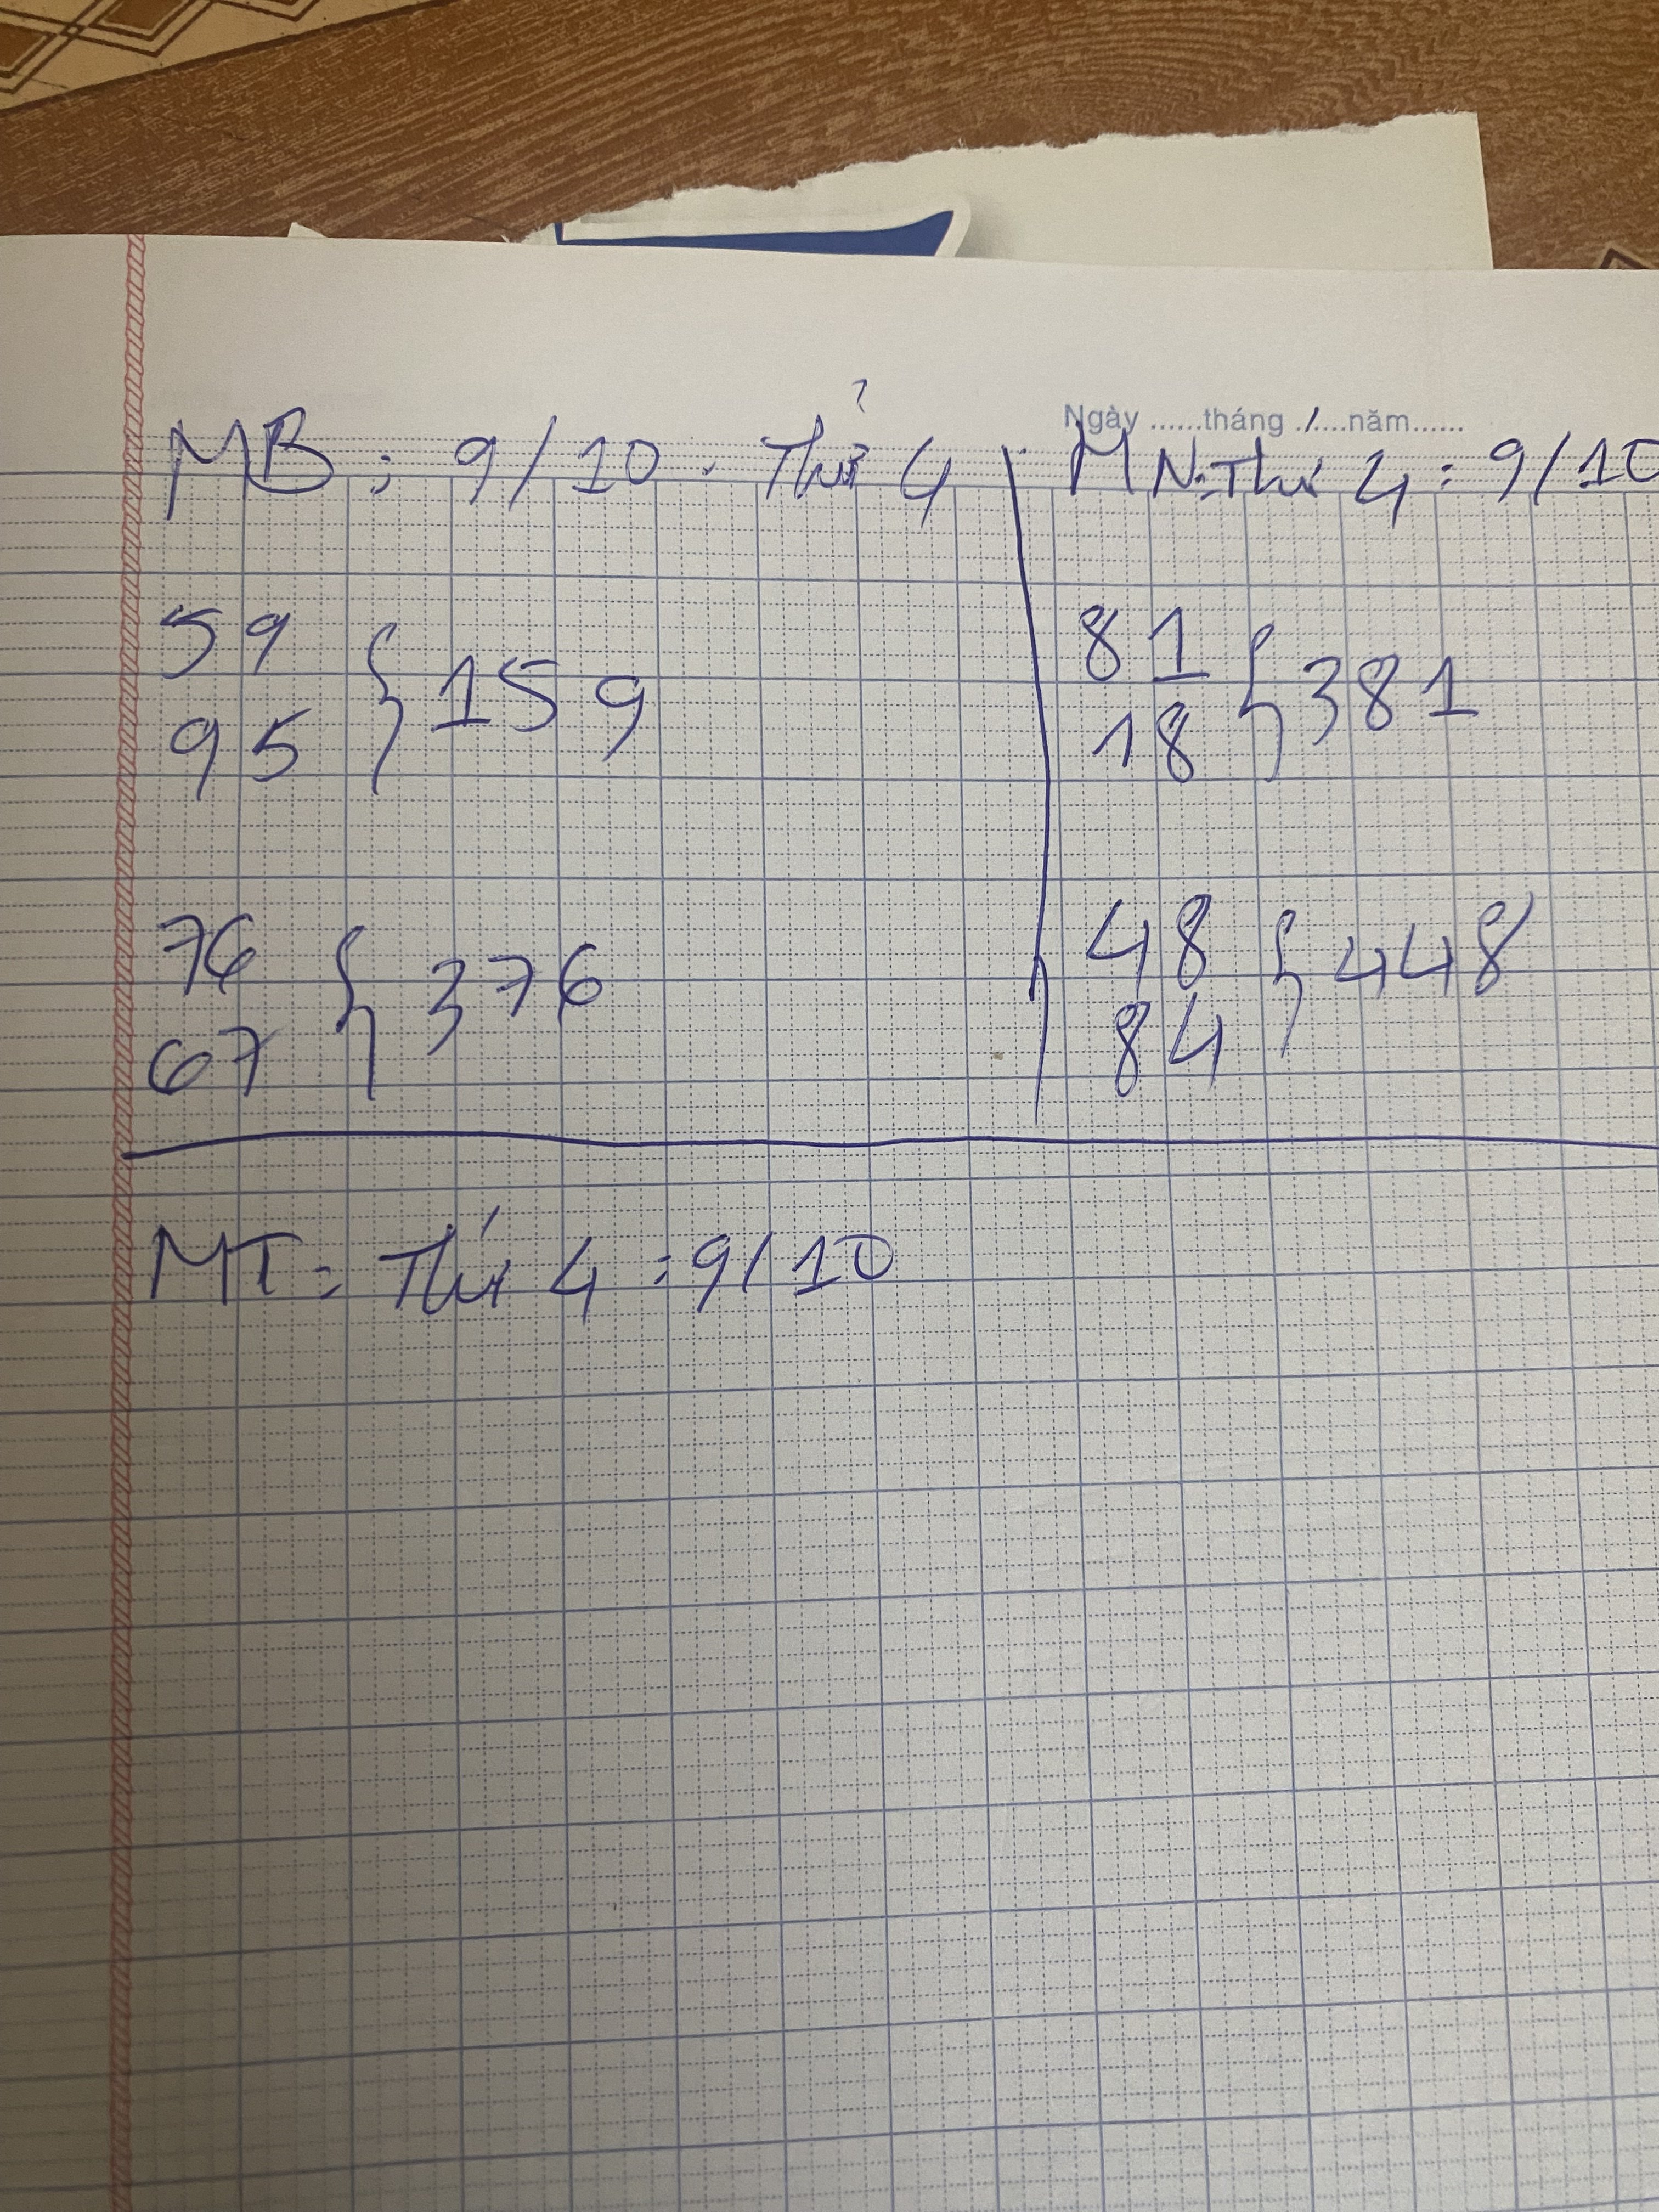 Ngày ......tháng ./....năm......
MB : 9/10 . Thử 4
59
95 } 159
76
67 } 376
MN : Thứ 4 : 9/10
81
18 } 381
48
84 } 448
MT : Thứ 4 : 9/10